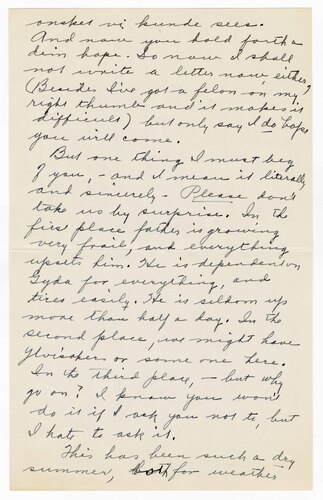 ønsket vi kunde sees.
And now you hold forth a
dim hope. So now I shall
not write a letter now either.
(Besides I've got a felon on my
right thumb and it makes it
difficult) but only say I do hope
you will come.
But one thing I must beg
of you, - and I mean it literally
and sincerely - Please don't
take us by surprise. In the
first place father is growing
very frail, and everything
upsets him. He is dependent on
Gyda for everything, and
tires easily. He is seldom up
more than half a day. In the
second place, we might have
Ylvisakers or some one here.
In the third place, - but why
go on? I know you won't
do it if I ask you not to, but
I hate to ask it.
This has been such a dry
summer, both for weather